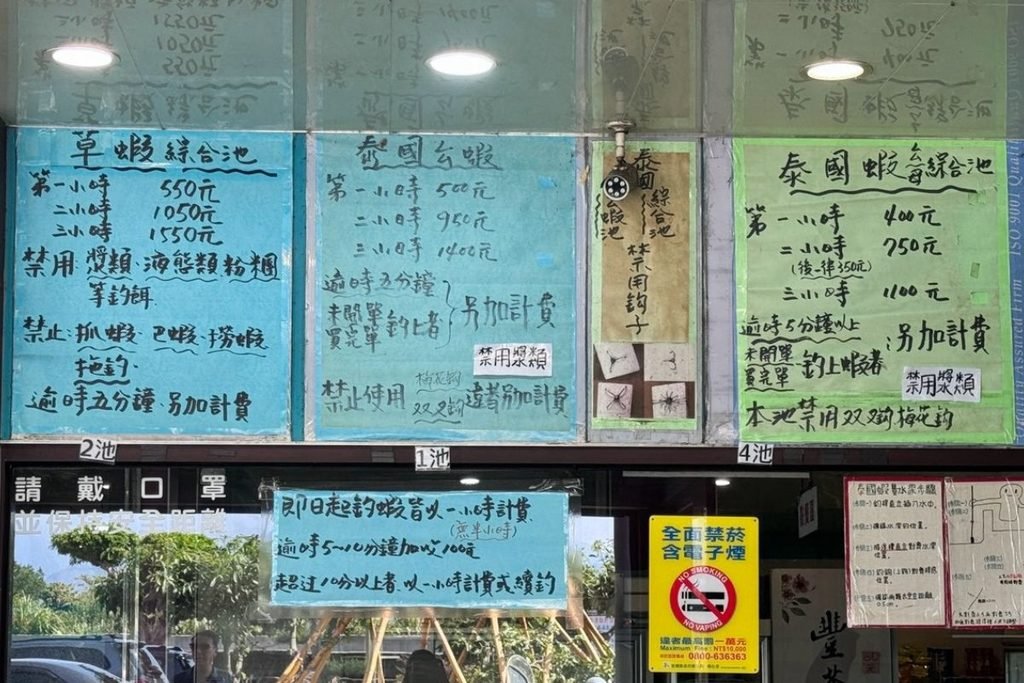 草蝦綜合池
第一小時 550元
二小時 1050元
三小時 1550元
禁用漿類.液態類粉糰
等釣餌
禁止:抓蝦.巴蝦.撈蝦
拖釣.
逾時五分鐘.另加計費
2池
泰國公蝦
第一小時 500元
二小時 950元
三小時 1400元
逾時五分鐘
未開單
買完單
釣上者
另加計費
禁用漿類
禁止使用
梅花鈎
双叉鈎
違者另加計費
1池
泰國
公蝦池
綜合池
禁用鈎子
泰國蝦公母綜合池
第一小時 400元
二小時 750元
(後一律350元)
三小時 1100元
逾時5分鐘以上
未開單
買完單
釣上蝦者
另加計費
禁用漿類
本池禁用双叉鈎梅花鈎
4池
ISO 9001
Assured Firm
請戴口罩
並保持安全距離
即日起釣蝦皆以一小時計費
(無半小時)
逾時5~10分鐘加收100元
超过10分以上者.以一小時計費或續釣
全面禁菸
含電子煙
NO SMOKING
NO VAPING
違者最高罰一萬元
Maximum Fine: NT$10,000
0800-636363